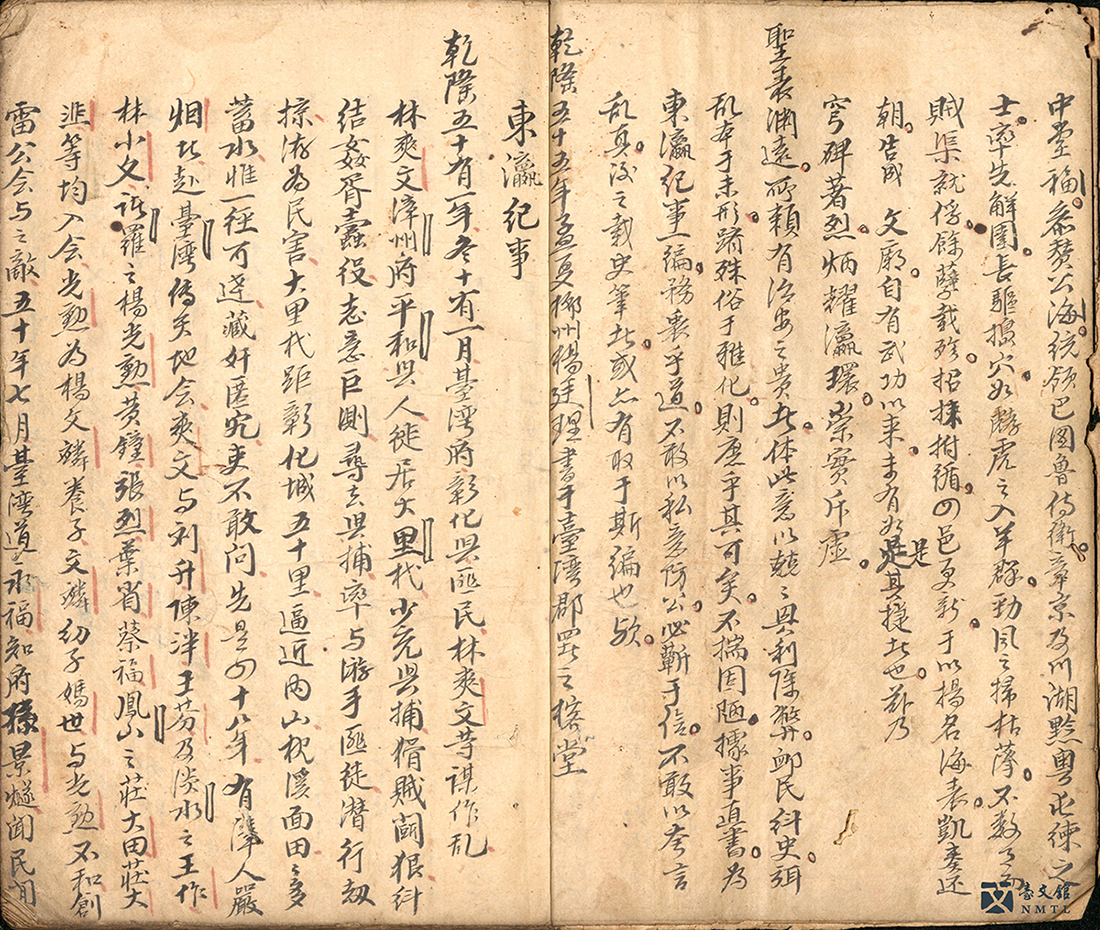 中堂福參贊公海統領巴圖魯侍衛章京及川湖黔粵屯練之
士率先解圍長驅搗穴如驎虎之入羊群勁風之掃枯蘀不數月而
賊渠就俘餘孽載殄招撫拊循四邑更新于以揚名海表凱奏還
朝告成 文廟自有武功以來未有如是其捷者也茲乃
穹碑著烈炳耀瀛環崇實斥虛
聖表淵遠所賴有治安之責者体此意以兢兢興利除弊卹民糾吏弭
乱本于未形躋殊俗于雅化則庶乎其可矣不揣固陋據事直書為
東瀛紀事一編務衷乎道不敢以私意防公必蘄于信不敢以夸言
乱真後之載史筆者或亦有取于斯編也歟
乾隆五十五年孟夏柳州楊廷理書于臺灣郡署之榕堂
東瀛紀事
乾隆五十有一年冬十有一月臺灣府彰化縣匪民林爽文等謀作乱
林爽文漳州府平和縣人徙居大里杙少充縣捕猾賊闘狠糾
結姦胥蠹役志意叵測尋去縣捕率与游手匪徒潛行刼
掠游為民害大里杙距彰化城五十里逼近內山枕溪面田多
蓄水惟一徑可達藏奸匿宄吏不敢问先是四十八年有漳人嚴
烟者赴臺灣傳天地会爽文与刘升陳泮王芬及淡水之王作
林小文諸羅之楊光勲黃鐘張烈葉省蔡福鳳山之莊大田莊大
韭等均入会光勲為楊文麟養子文麟幼子媽世与光勲不和創
雷公会与之敵五十年七月臺灣道永福知府孫景燧聞民间
臺文館
NMTL